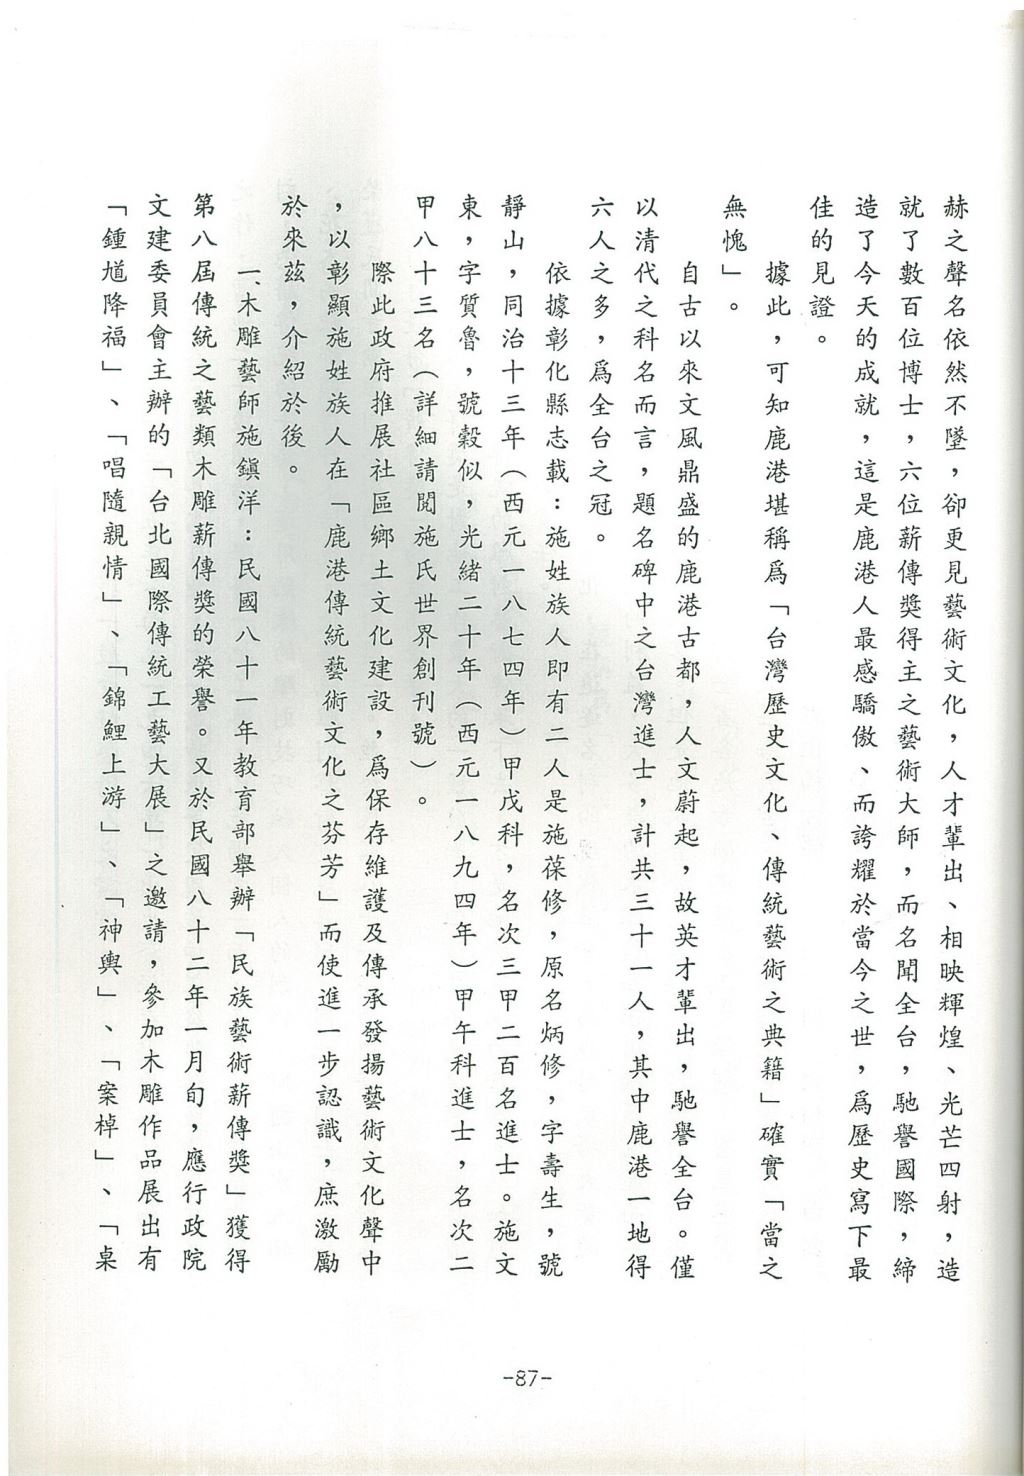 赫之聲名依然不墜，卻更見藝術文化，人才輩出、相映輝煌、光芒四射，造
就了數百位博士，六位薪傳獎得主之藝術大師，而名聞全台，馳譽國際，締
造了今天的成就，這是鹿港人最感驕傲、而誇耀於當今之世，爲歷史寫下最
佳的見證。
據此，可知鹿港堪稱爲「台灣歷史文化、傳統藝術之典籍」確實「當之
無愧」。
自古以來文風鼎盛的鹿港古都，人文蔚起，故英才輩出，馳譽全台。僅
以清代之科名而言，題名碑中之台灣進士，計共三十一人，其中鹿港一地得
六人之多，爲全台之冠。
依據彰化縣志載：施姓族人即有二人是施葆修，原名炳修，字壽生，號
靜山，同治十三年（西元一八七四年）甲戊科，名次三甲二百名進士。施文
東，字質魯，號穀似，光緒二十年（西元一八九四年）甲午科進士，名次二
甲八十三名（詳細請閱施氏世界創刊號）。
際此政府推展社區鄉土文化建設，爲保存維護及傳承發揚藝術文化聲中
，以彰顯施姓族人在「鹿港傳統藝術文化之芬芳」而使進一步認識，庶激勵
於來茲，介紹於後。
一、木雕藝師施鎮洋：民國八十一年教育部舉辦「民族藝術薪傳獎」獲得
第八屆傳統之藝類木雕薪傳獎的榮譽。又於民國八十二年一月旬，應行政院
文建委員會主辦的「台北國際傳統工藝大展」之邀請，參加木雕作品展出有
「鍾馗降福」、「唱隨親情」、「錦鯉上游」、「神輿」、「案棹」、「桌
-87-